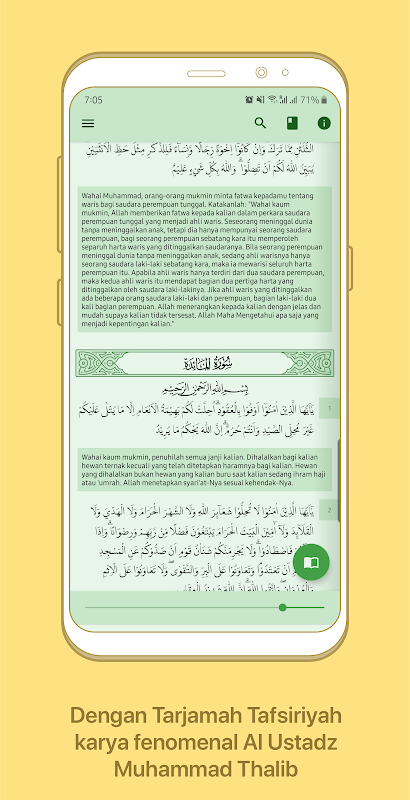 7:05
71%
الثُّلُثٰنِ مِمَّا تَرَكَ وَاِنْ كَانُوْٓا اِخْوَةً رِّجَالًا وَّنِسَاۤءً فَلِلذَّكَرِ مِثْلُ حَظِّ الْاُنْثَيَيْنِ
يُبَيِّنُ اللّٰهُ لَكُمْ اَنْ تَضِلُّوْاۗ وَاللّٰهُ بِكُلِّ شَيْءٍ عَلِيْمٌ
Wahai Muhammad, orang-orang mukmin minta fatwa kepadamu tentang
waris bagi saudara perempuan tunggal. Katakanlah: "Wahai kaum
mukmin, Allah memberikan fatwa kepada kalian dalam perkara saudara
perempuan tunggal yang menjadi ahli waris. Seseorang meninggal dunia
tanpa meninggalkan anak, tetapi dia hanya mempunyai seorang saudara
perempuan, bagi seorang perempuan sebatang kara itu memperoleh
separuh harta waris yang ditinggalkan saudaranya. Bila seorang perempuan
meninggal dunia tanpa meninggalkan anak, sedang ahli warisnya hanya
seorang saudara laki-laki sebatang kara, maka ia mewarisi seluruh harta
perempuan itu. Apabila ahli waris hanya terdiri dari dua saudara perempuan,
maka kedua ahli waris itu mendapat bagian dua pertiga harta yang
ditinggalkan oleh saudara laki-lakinya. Jika ahli waris yang ditinggalkan
ada beberapa orang saudara laki-laki dan perempuan, bagian laki-laki dua
kali bagian perempuan. Allah menerangkan kepada kalian dengan jelas dan
mudah supaya kalian tidak tersesat. Allah Maha Mengetahui apa saja yang
menjadi kepentingan kalian."
سُوْرَةُ الْمَاۤئِدَةِ
بِسْمِ اللّٰهِ الرَّحْمٰنِ الرَّحِيْمِ
يٰٓاَيُّهَا الَّذِيْنَ اٰمَنُوْٓا اَوْفُوْا بِالْعُقُوْدِۗ اُحِلَّتْ لَكُمْ بَهِيْمَةُ الْاَنْعَامِ اِلَّا مَا يُتْلٰى عَلَيْكُمْ
1
غَيْرَ مُحِلِّى الصَّيْدِ وَاَنْتُمْ حُرُمٌۗ اِنَّ اللّٰهَ يَحْكُمُ مَا يُرِيْدُ
Wahai kaum mukmin, penuhilah semua janji kalian. Dihalalkan bagi kalian
hewan ternak kecuali yang telah ditetapkan haramnya bagi kalian. Hewan
yang dihalalkan bukan hewan yang kalian buru saat kalian sedang ihram haji
atau 'umrah. Allah menetapkan syari'at-Nya sesuai kehendak-Nya.
يٰٓاَيُّهَا الَّذِيْنَ اٰمَنُوْا لَا تُحِلُّوْا شَعَاۤىِٕرَ اللّٰهِ وَلَا الشَّهْرَ الْحَرَامَ وَلَا الْهَدْيَ وَلَا
2
الْقَلَاۤىِٕدَ وَلَآ اٰۤمِّيْنَ الْبَيْتَ الْحَرَامَ يَبْتَغُوْنَ فَضْلًا مِّنْ رَّبِّهِمْ وَرِضْوَانًاۗ وَاِذَا
فَاصْطَادُوْاۗ وَلَا يَجْرِمَنَّكُمْ شَنَاٰنُ قَوْمٍ اَنْ صَدُّوْكُمْ عَنِ الْمَسْجِدِ
اَنْ تَعْتَدُوْاۘ وَتَعَاوَنُوْا عَلَى الْبِرِّ وَالتَّقْوٰىۖ وَلَا تَعَاوَنُوْا عَلَى الْاِثْمِ
وَالْعُدْوَانِۖ وَاتَّقُوا اللّٰهَۗ اِنَّ اللّٰهَ شَدِيْدُ الْعِقَابِ
Dengan Tarjamah Tafsiriyah
karya fenomenal Al Ustadz
Muhammad Thalib